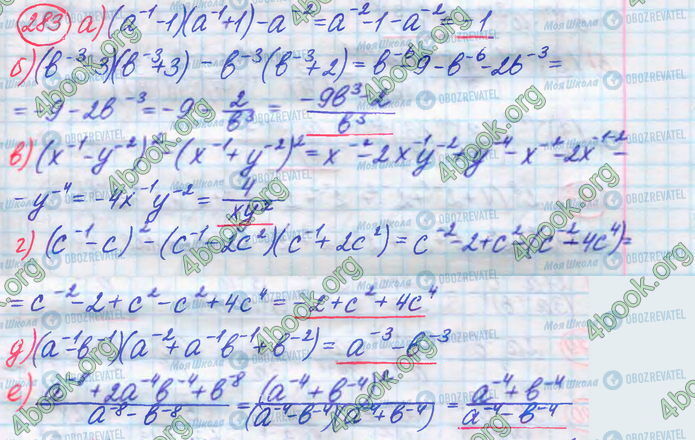 283 а) (a⁻¹-1)(a⁻¹+1)-a⁻²=a⁻²-1-a⁻²=-1
б) (b⁻³-3)(b⁻³+3)-b⁻³(b⁻³+2)=b⁻⁶-9-b⁻⁶-2b⁻³=
=-9-2b⁻³=-9-2/b³=-9b³-2/b³
в) (x⁻¹-y⁻²)²-(x⁻¹+y⁻²)²=x⁻²-2x⁻¹y⁻²+y⁻⁴-x⁻²-2x⁻¹⁻²-
-y⁻⁴=-4x⁻¹y⁻²=4/xy²
г) (c⁻¹-c)²-(c⁻¹-2c²)(c⁻¹+2c²)=c⁻²-2+c²-(c⁻²-4c⁴)=
=c⁻²-2+c²-c²+4c⁴=-2+c²+4c⁴
д) (a⁻¹-b⁻¹)(a⁻²+a⁻¹b⁻¹+b⁻²)=a⁻³-b⁻³
е) a⁻⁸+2a⁻⁴b⁻⁴+b⁻⁸/a⁻⁸-b⁻⁸=(a⁻⁴+b⁻⁴)²/(a⁻⁴-b⁻⁴)(a⁻⁴+b⁻⁴)=a⁻⁴+b⁻⁴/a⁻⁴-b⁻⁴
4book.org
Моя Школа
OBOZREVATEL